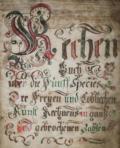 Rechen
Buch
über die Fünff Species
Der Freyen und Löblichen
Kunst Rechnens in gantz
und gebrochenen Zahlen